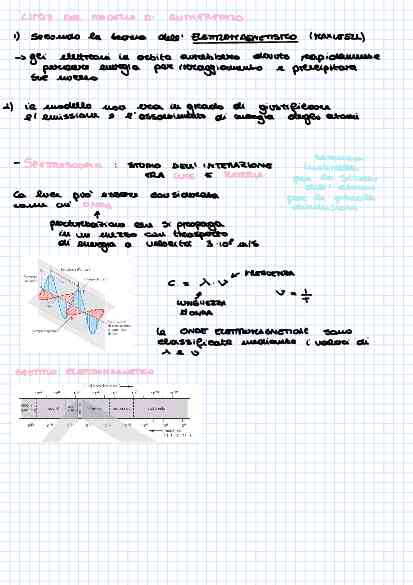 LIMITI DEL MODELLO DI RUTHERFORD
1) SECONDO LA TEORIA DELL' ELETTROMAGNETISMO (MAXWELL)
→ GLI ELETTRONI IN ORBITA AVREBBERO DOVUTO RAPIDAMENTE
PERDERE ENERGIA PER IRRAGGIAMENTO E PRECIPITARE
SUL NUCLEO
2) IL MODELLO NON ERA IN GRADO DI GIUSTIFICARE
L'EMISSIONE E L'ASSORBIMENTO DI ENERGIA DEGLI ATOMI
- SPETTROSCOPIA : STUDIO DELL'INTERAZIONE
TRA LUCE E MATERIA
PER LO STUDIO
DELL' ATOMO
PER LE PICCOLE
DIMENSIONI
LA LUCE PUO' ESSERE CONSIDERATA
COME UN' ONDA
PERTURBAZIONE CHE SI PROPAGA
IN UN MEZZO CON TRASPORTO
DI ENERGIA A VELOCITA' 3·10⁸ m/s
FREQUENZA
c = λ · ν
ν = 1/T
LUNGHEZZA
D'ONDA
LE ONDE ELETTROMAGNETICHE SONO
CLASSIFICATE MEDIANTE I VALORI DI
λ E ν
SPETTRO ELETTROMAGNETICO